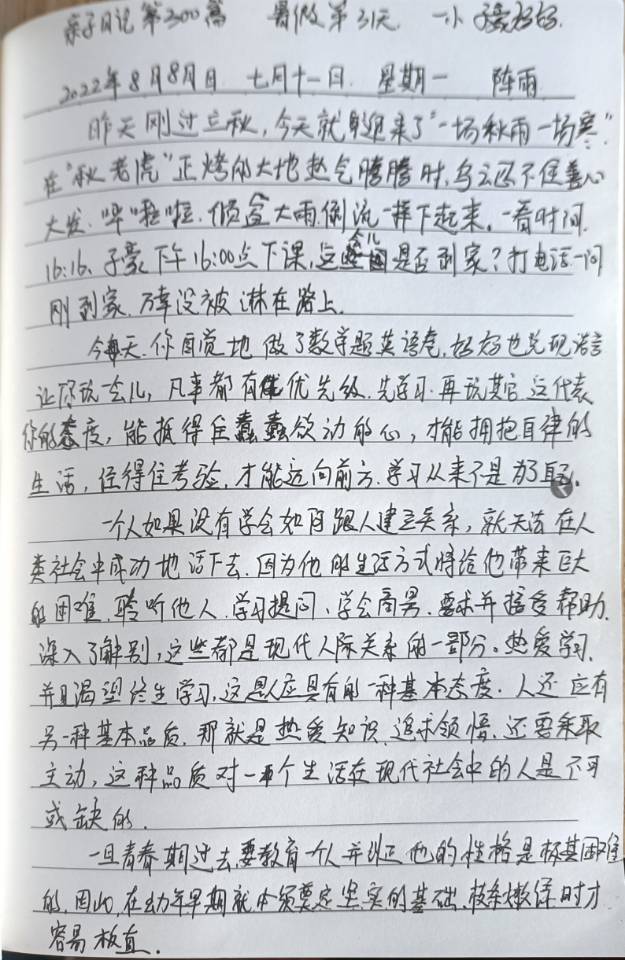 亲子日记第300篇 暑假第31天 一小 子豪妈妈.
2022年8月8日 七月十一日. 星期一 阵雨
昨天刚过立秋,今天就迎来了“一场秋雨一场寒”.
在“秋老虎”正烤的大地热气腾腾时,乌云还不住善心
大发.哗啦啦.倾盆大雨倒流一样下起来.一看时间
16:16、子豪下午16:00点下课,这会儿是否到家?打电话一问
刚到家.万幸没被淋在路上.
今天.你自觉地做了数学题英语卷,妈妈也兑现诺言
让你玩一会儿,凡事都有优先级.先学习.再说其它这代表
你的态度,能抵得住蠢蠢欲动的心,才能拥抱自律的
生活,经得住考验,才能迈向前方.学习从来不是为了
一个人如果没有学会如何跟人建立关系,就无法在人
类社会中成功地活下去.因为他的生活方式将给他带来巨大
的困难.聆听他人.学习提问、学会商男.要求并接受帮助.
深入了解别,这些都是现代人际关系的一部分。热爱学习.
并且渴望终生学习,这是人应具有的一种基本态度.人还应有
另一种基本品质.那就是热爱知识.追求领悟.还要采取
主动,这种品质对一个生活在现代社会中的人是不可
或缺的.
一旦青春期过去要教育一个人并纠正他的性格是极其困难
的.因此,在幼年早期就必须奠定坚实的基础.枝条嫩绿时才
容易板直.